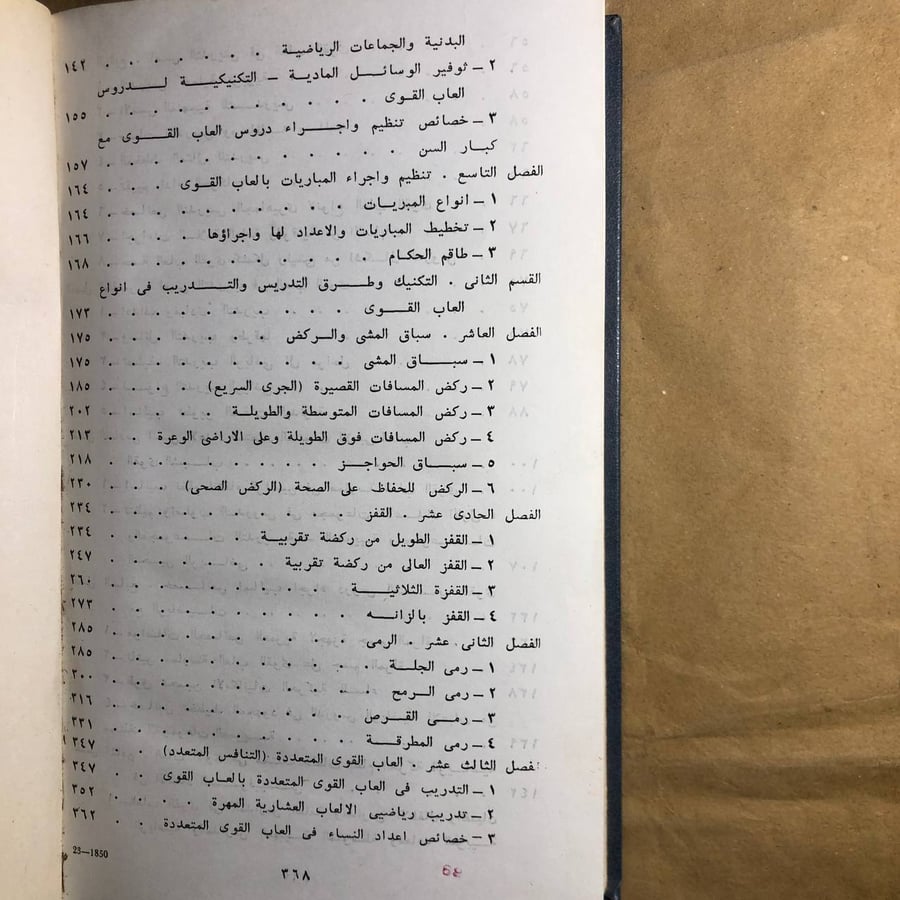 البدنية والجماعات الرياضية . . . . . . . ١٤٢
٢ ــ ثوفير الوسائل المادية ــ التكنيكية لــدروس
العاب القوى . . . . . . . . . . . ١٥٥
٣ ــ خصائص تنظيم واجراء دروس العاب القوى مع
كبار السن . . . . . . . . . . . ١٥٧
الفصل التاسع . تنظيم واجراء المباريات بالعاب القوى . . . ١٦٤
١ ــ انواع المبريات . . . . . . . . . ١٦٤
٢ ــ تخطيط المباريات والاعداد لها واجراؤها . . . . ١٦٦
٣ ــ طاقم الحكام . . . . . . . . . . ١٦٨
القسم الثانى . التكنيك وطرق التدريس والتدريب فى انواع
العاب القوى . . . . . . . . . . . ١٧٣
الفصل العاشر . سباق المشى والركض . . . . . . . ١٧٥
١ ــ سباق المشى . . . . . . . . . ١٧٥
٢ ــ ركض المسافات القصيرة (الجرى السريع) . . . . ١٨٥
٣ ــ ركض المسافات المتوسطة والطويلة . . . . . ٢٠٢
٤ ــ ركض المسافات فوق الطويلة وعلى الاراضى الوعرة . . ٢١٣
٥ ــ سباق الحواجز . . . . . . . . . ٢١٨
٦ ــ الركض للحفاظ على الصحة (الركض الصحى) . . . . ٢٣٠
الفصل الحادى عشر . القفز . . . . . . . . . ٢٣٤
١ ــ القفز الطويل من ركضة تقربية . . . . . . ٢٣٤
٢ ــ القفز العالى من ركضة تقربية . . . . . . ٢٤٧
٣ ــ القفزة الثلاثية . . . . . . . . . ٢٦٠
٤ ــ القفز بالزانه . . . . . . . . . ٢٧٣
الفصل الثانى عشر . الرمى . . . . . . . . . ٢٨٥
١ ــ رمى الجلة . . . . . . . . . . ٢٨٥
٢ ــ رمى الرمح . . . . . . . . . . ٣٠٠
٣ ــ رمى القرص . . . . . . . . . . ٣١٦
٤ ــ رمى المطرقة . . . . . . . . . ٣٣١
الفصل الثالث عشر . العاب القوى المتعددة (التنافس المتعدد) ٣٤٧
١ ــ التدريب فى العاب القوى المتعددة بالعاب القوى . . ٣٤٧
٢ ــ تدريب رياضيى الالعاب العشارية المهرة . . . . ٣٥٢
٣ ــ خصائص اعداد النساء فى العاب القوى المتعددة . . ٣٦٢
23—1850
٣٦٨